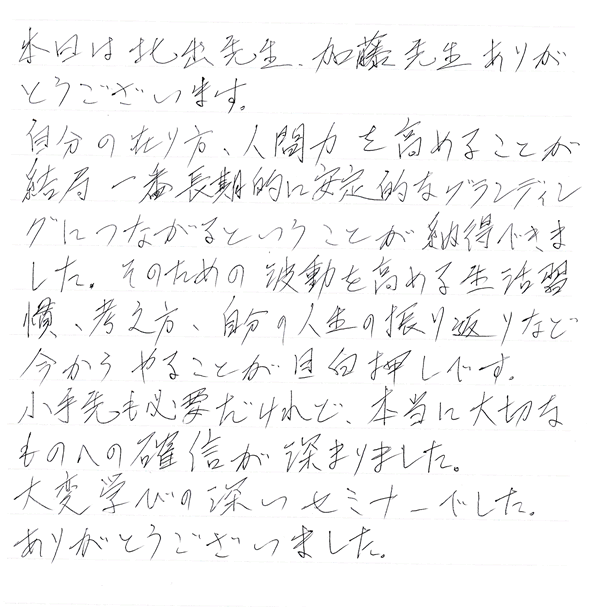 本日は北出先生、加藤先生ありが
とうございます。
自分の在り方、人間力を高めることが
結局一番長期的に安定的なブランディン
グにつながるということが納得できま
した。そのための波動を高める生活習
慣、考え方、自分の人生の振り返りなど
今からやることが目白押しです。
小手先も必要だけれど、本当に大切な
ものへの確信が深まりました。
大変学びの深いセミナーでした。
ありがとうございました。